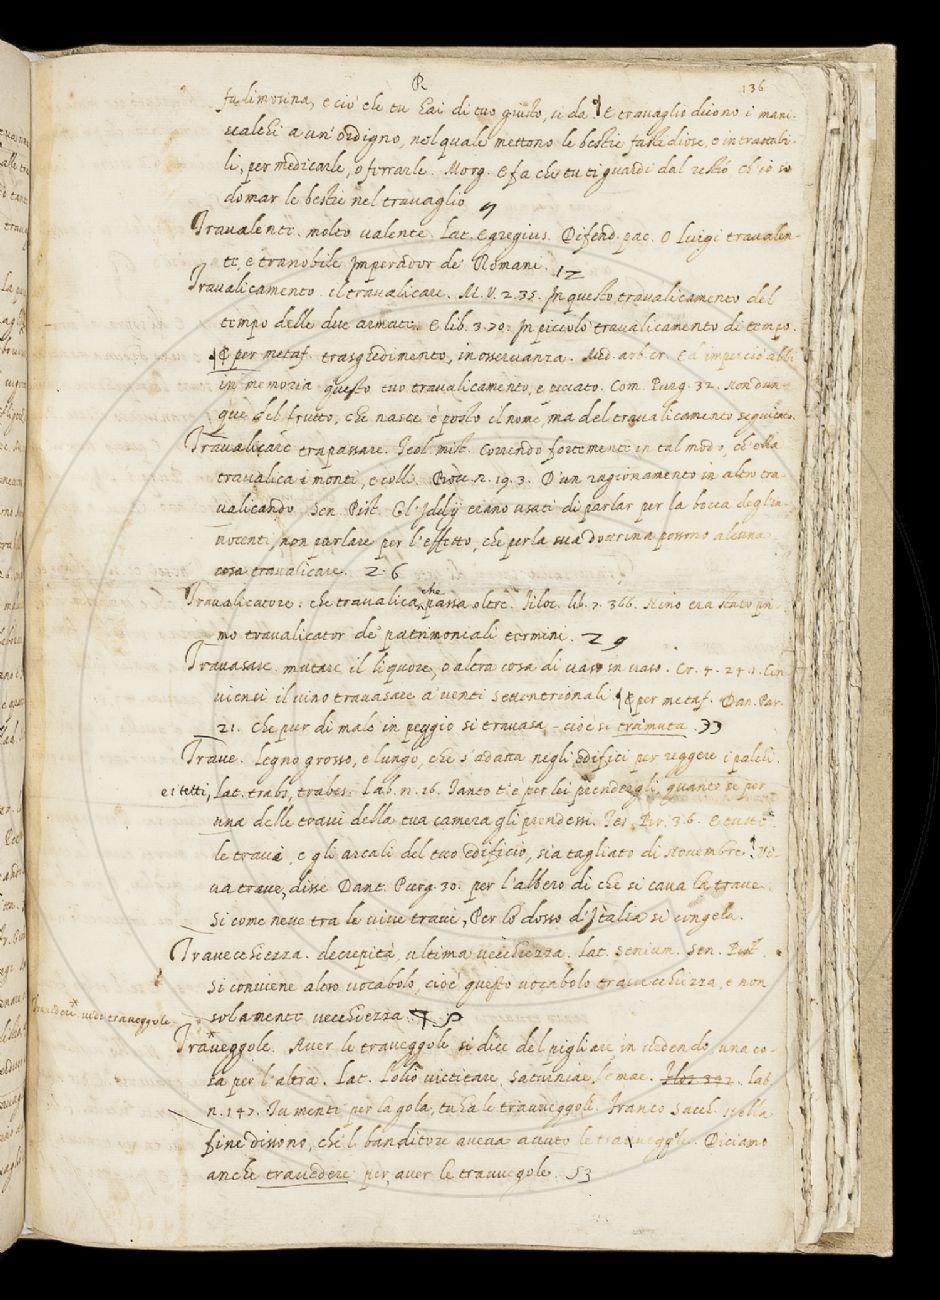 R
136
fu limosina, e ciò che tu hai di tuo giusto, si da. E travaglio dicono i mani-
scalchi a un' ordigno, nel quale mettono le bestie fastidiose, e intrattabi-
li, per medicarle, o ferrarle. Morg. E fa che tu ti guardi dal resto ch' io so
domar le bestie nel travaglio 9
Travalente. molto valente. Lat. egregius. Difend. pac. O Luigi travalen-
te, e tranobile Imperador de' Romani. 12
Travalicamento. il travalicare. M. V. 2. 35. In questo travalicamento del
tempo delle due armate. E lib. 3. 70. In piccolo travalicamento di tempo.
¶ E per metaf. trasgredimento, inosservanza. Med. arb. cr. Ed imperciò abbi
in memoria questo tuo travalicamento, e peccato. Com. Purg. 32. Non dun-
que del frutto, che nasce è posto il nome, ma del travalicamento seguente.
Travalicare trapassare. Teol. mist. Correndo fortemente in tal modo, ch' ella
travalica i monti, e colli. n. 19. 3. D'un ragionamento in altro tra-
valicando. Sen. Pist. Gl' Iddij erano usati di parlar per la bocca degl'in-
nocenti, non parlare per l'effetto, che per la sua dottrina possino alcuna
cosa travalicare. 26
Travalicatore. che travalica, che passa oltre. Filoc. lib. 7. 366. Nino era stato pri-
mo travalicator de' patrimoniali termini. 29
Travasare. mutare il liquore, o altra cosa di vaso in vaso. Cr. 4. 24. 1. Con-
viensi il vino travasare a' venti settentrionali ¶ E per metaf. Dan. Par.
21. Che pur di male in peggio si travasa, cioè si tramuta. 33
Trave. Legno grosso, e lungo, che s' adatta negli edifici per reggere i palchi
e i tetti, Lat. trabs, trabes. Lab. n. 26. Tanto t' è per lei prendergli, quanto se per
una delle travi della tua camera gli prendessi. Tes. Br. 3. 6. E tutte
le travi, e gli arcali del tuo edificio, sia tagliato di Novembre. Vi-
va trave, disse Dant. Purg. 30. per l'albero di che si cava la trave.
Si come neve tra le vive travi, Per lo dosso d'Italia si congela.
Travecchiezza. decrepità, ultima vecchiezza. Lat. senium. Sen. Pist.
Si conviene altro vocabolo, cioè questo vocabolo travecchiezza, e non
solamente vecchiezza.
vide traveggole
Traveggole. Aver le traveggole si dice del pigliare in vedendo una co-
sa per l'altra. Lat. lolio victitare, Lab.
n. 147. Tu menti per la gola, tu ha le traveggole. Franco Sacch. nella
fine dissono, che 'l banditore aveva avuto le traveggole. Diciamo
anche travedere per aver le travegole. 53